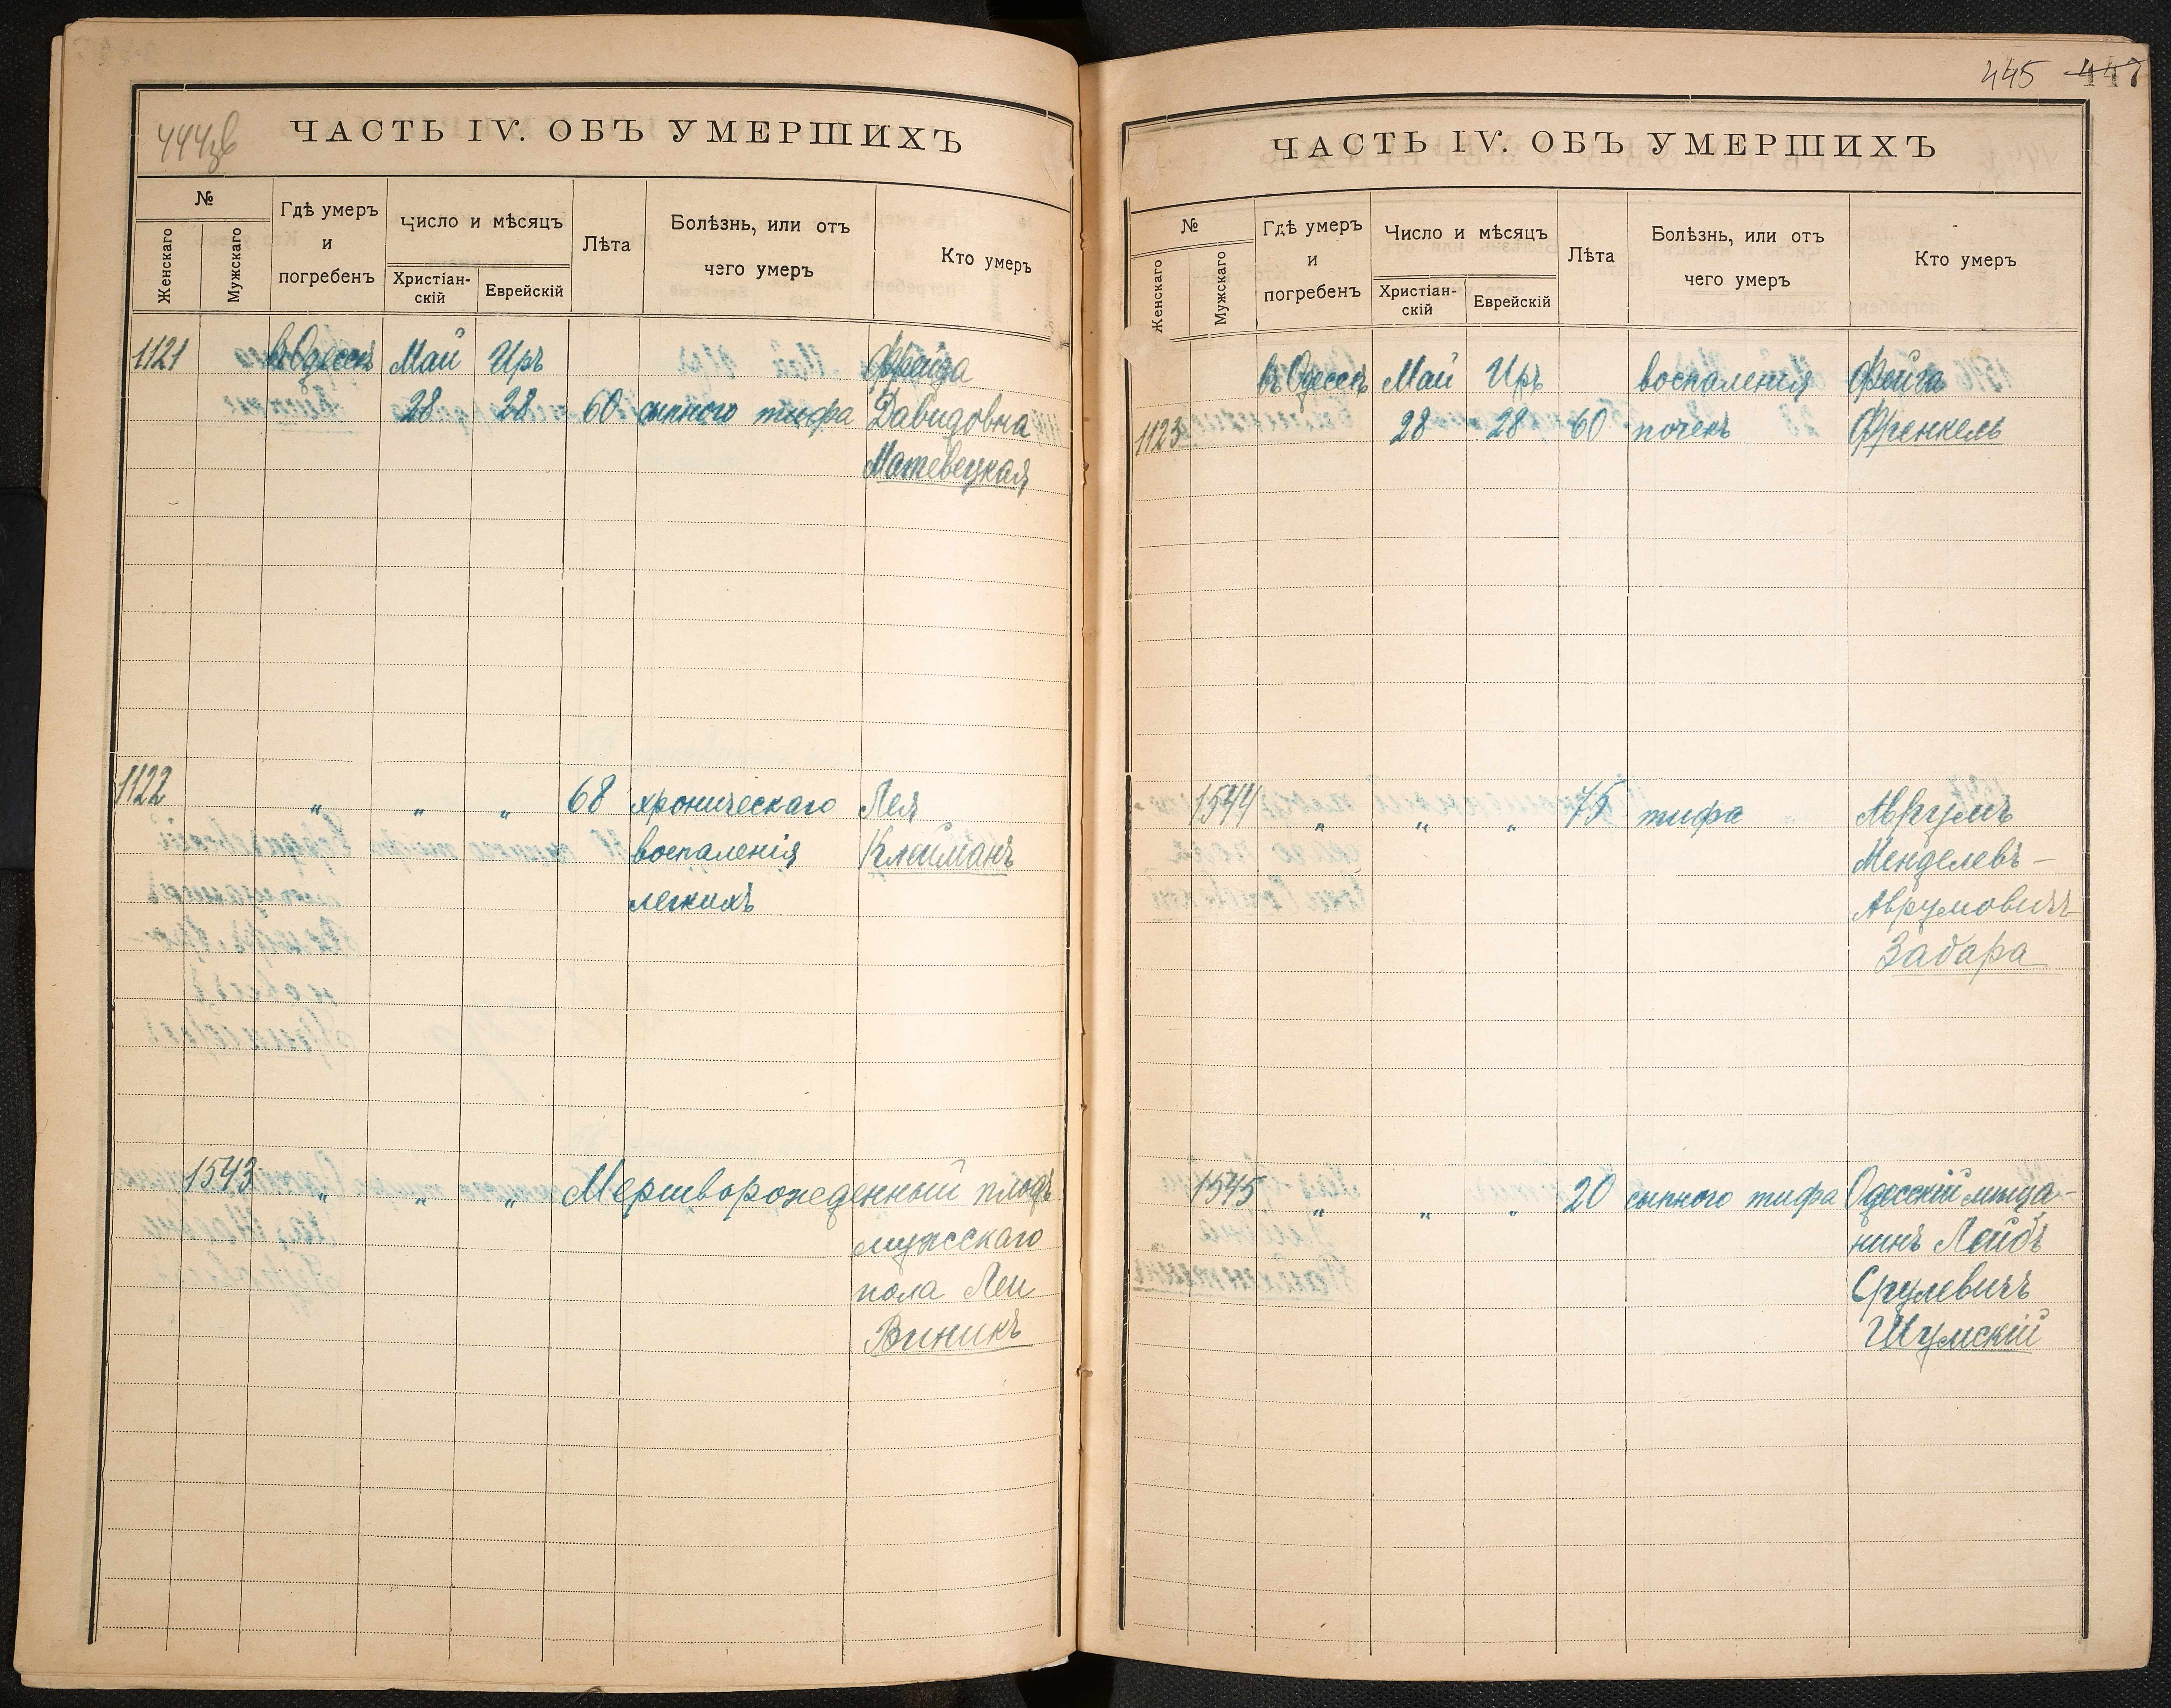 444 об
ЧАСТЬ IV. ОБЪ УМЕРШИХЪ
№
Женскаго
Мужскаго
Гдѣ умеръ
и
погребенъ
Число и мѣсяцъ
Христіан-
скій
Еврейскій
Лѣта
Болѣзнь, или отъ
чего умеръ
Кто умеръ
1121 въ Одессѣ Май Иръ Фрейда
28 28 60 сыпного тифа Давидовна
Матевецкая
1122 „ „ „ 68 хроническаго Лея
воспаленія Клейманъ
легкихъ
1543 „ „ „ Мертворожеденный плодъ
мужскаго
пола Леи
Виникъ
445 447
ЧАСТЬ IV. ОБЪ УМЕРШИХЪ
№
Женскаго
Мужскаго
Гдѣ умеръ
и
погребенъ
Число и мѣсяцъ
Христіан-
скій
Еврейскій
Лѣта
Болѣзнь, или отъ
чего умеръ
Кто умеръ
въ Одессѣ Май Иръ воспаления Фейга
1123 28 28 60 почекъ Френкель
1544 „ „ „ 75 тифа Аврумъ
Менделевъ-
Аврумовичъ
Забара
1545 „ „ „ 20 сыпного тифа Одесскій мѣща-
нинъ Лейбъ
Срулевичъ
Шумскій